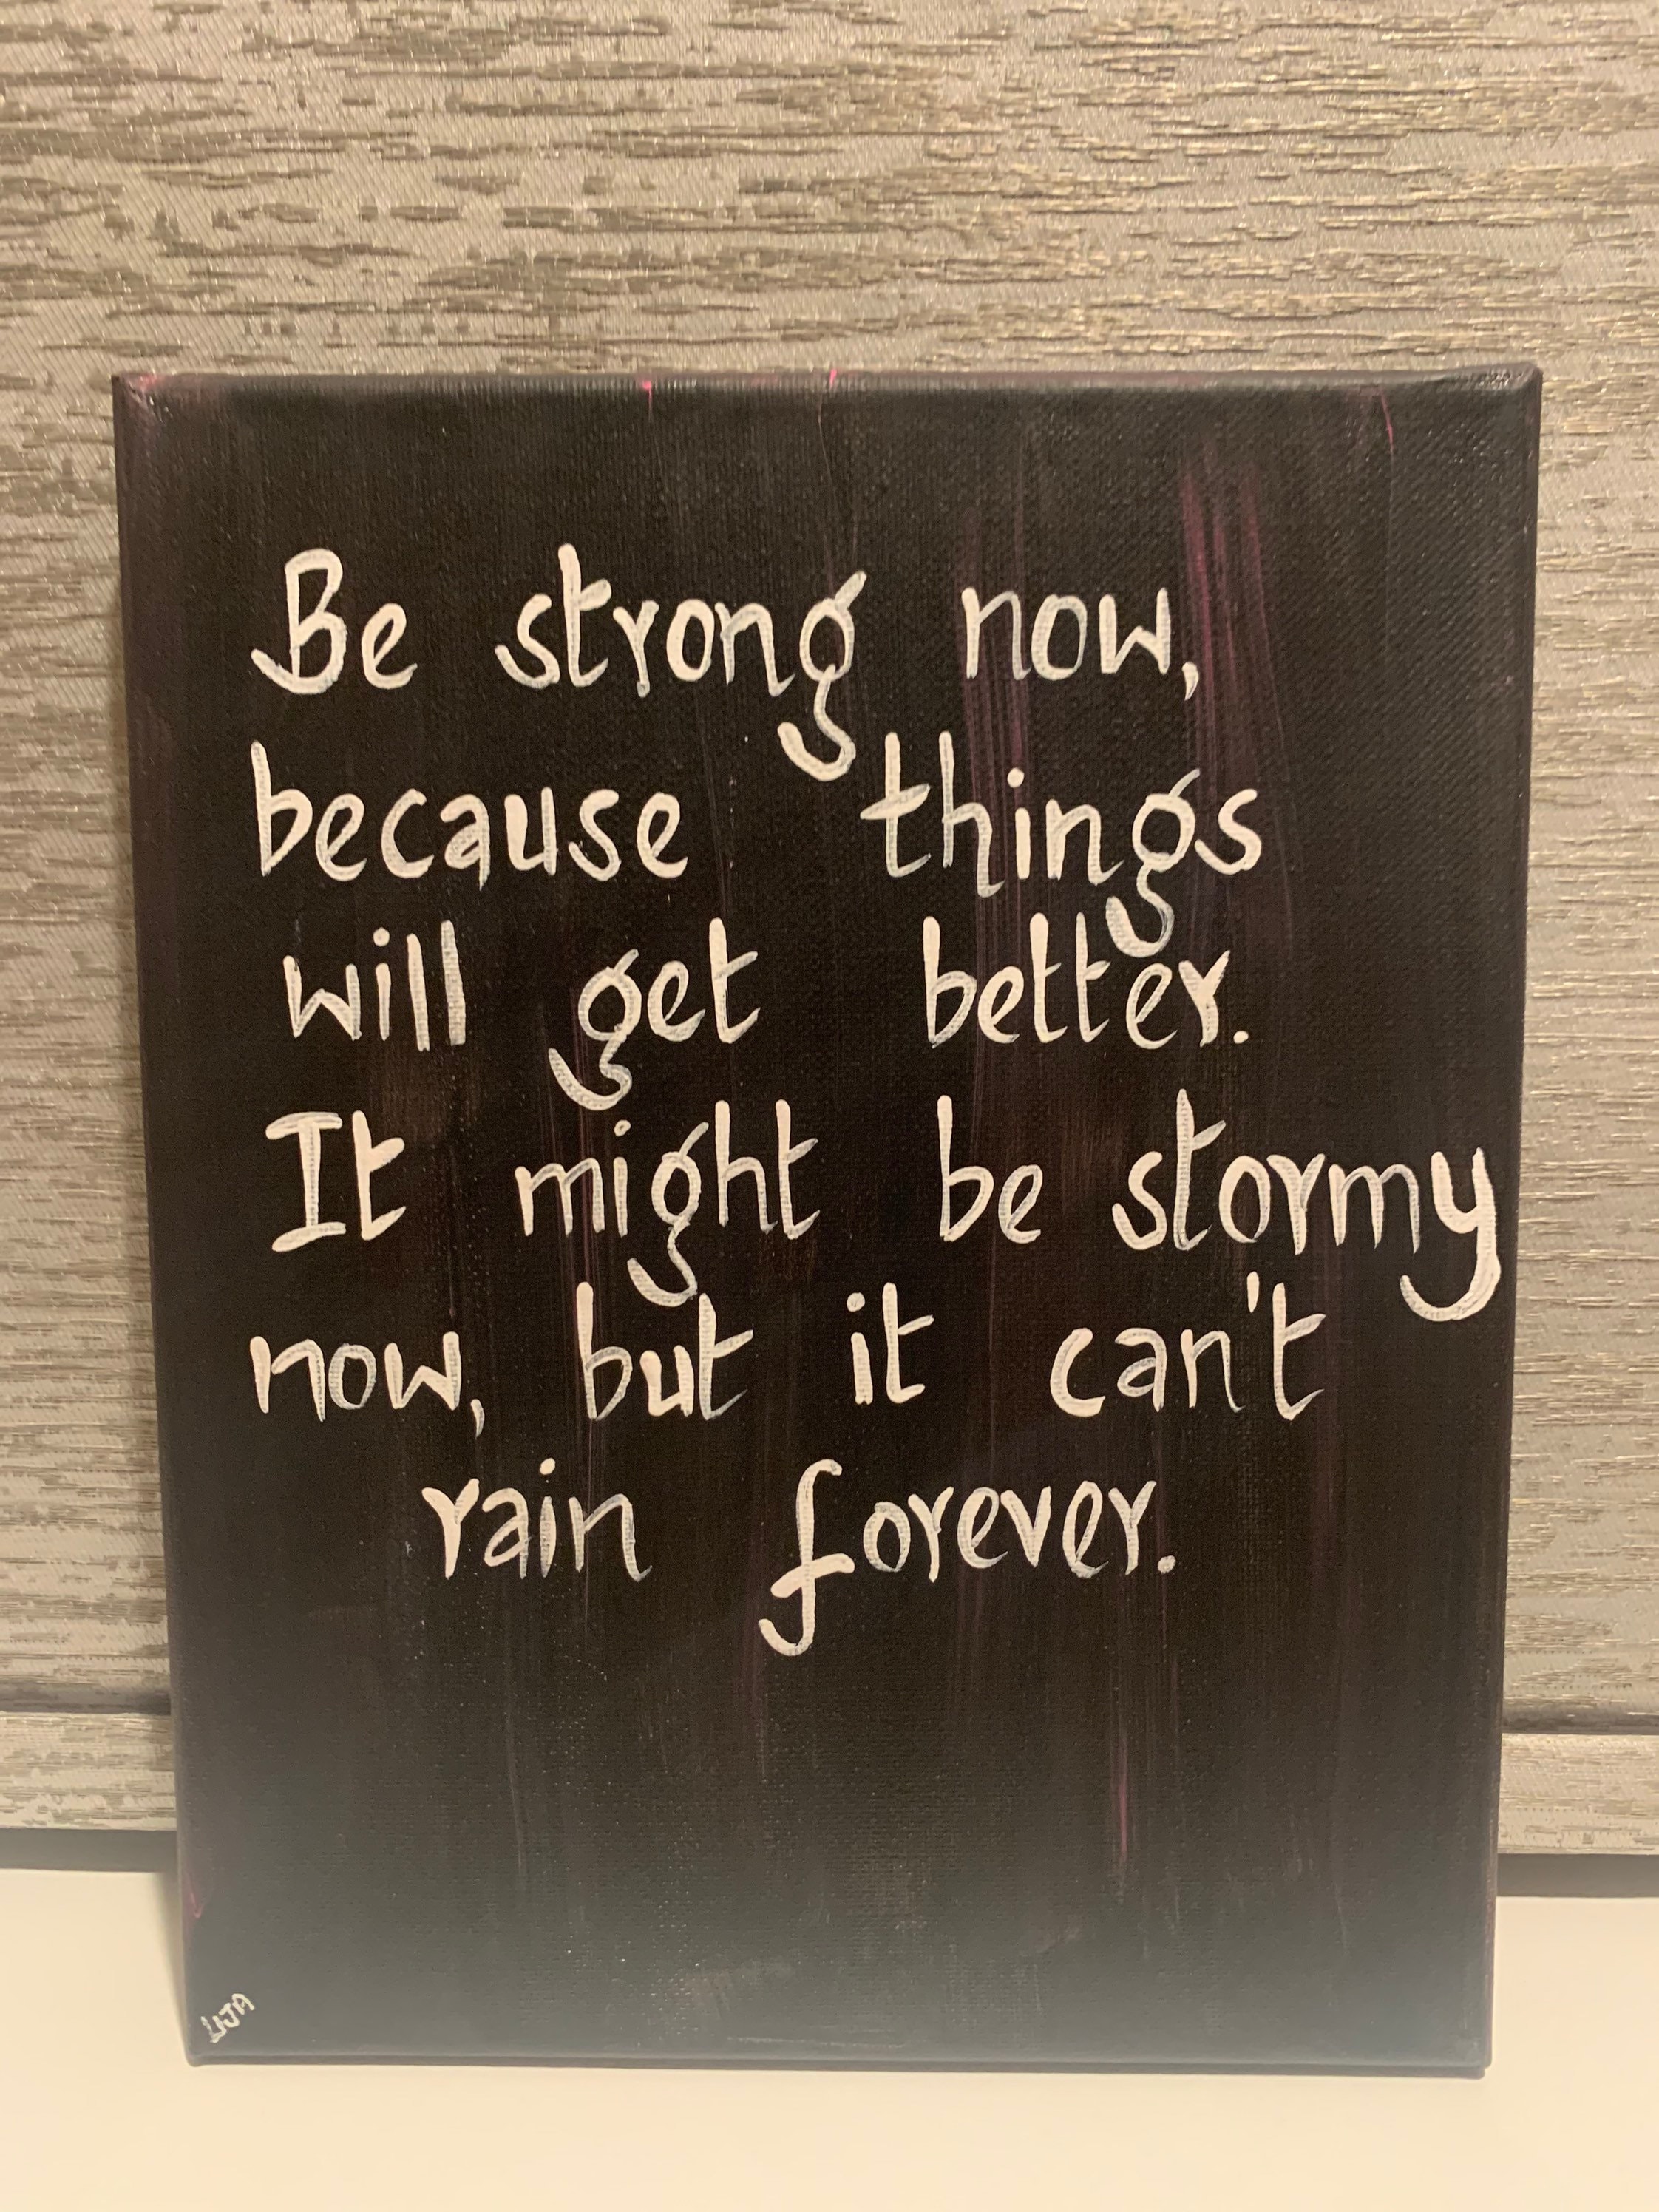 Be strong now,
because things
will get better.
It might be stormy
now, but it can't
rain forever.